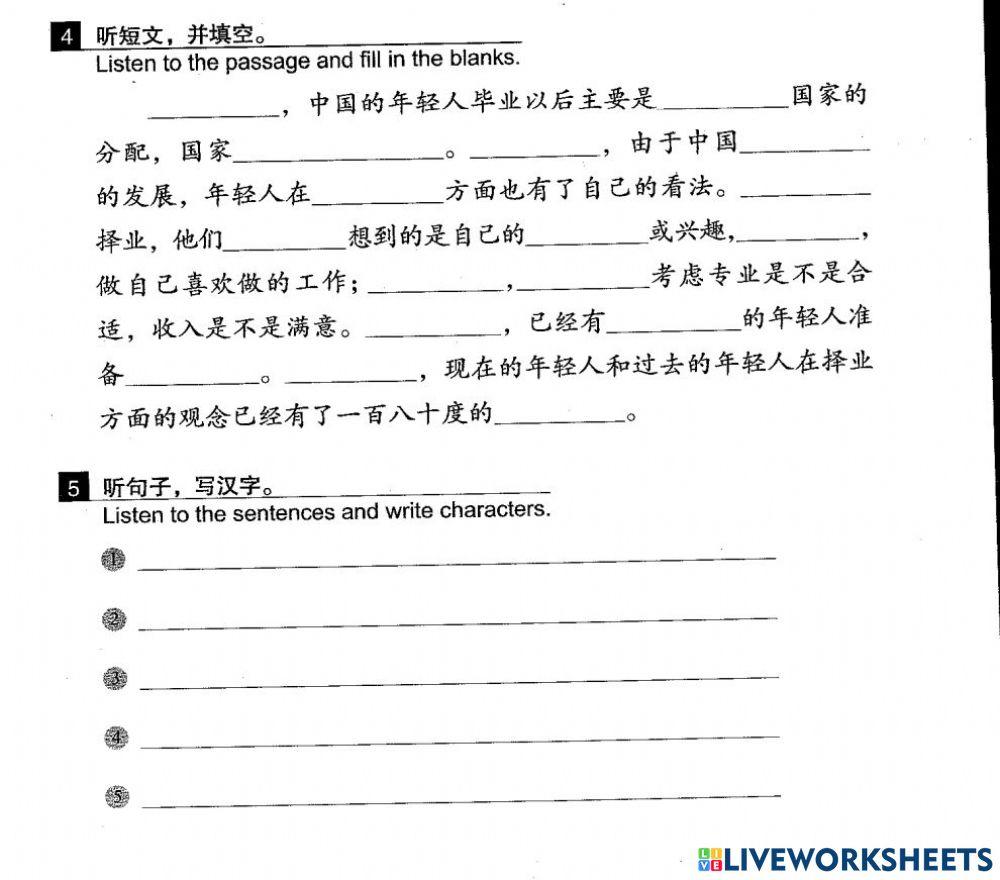 4 听短文，并填空。
Listen to the passage and fill in the blanks.
__________，中国的年轻人毕业以后主要是__________国家的
分配，国家________________。__________，由于中国__________
的发展，年轻人在__________方面也有了自己的看法。__________
择业，他们__________想到的是自己的__________或兴趣，__________，
做自己喜欢做的工作；__________，__________考虑专业是不是合
适，收入是不是满意。__________，已经有__________的年轻人准
备__________。__________，现在的年轻人和过去的年轻人在择业
方面的观念已经有了一百八十度的__________。
5 听句子，写汉字。
Listen to the sentences and write characters.
① ____________________
② ____________________
③ ____________________
④ ____________________
⑤ ____________________
LIVE LIVEWORKSHEETS